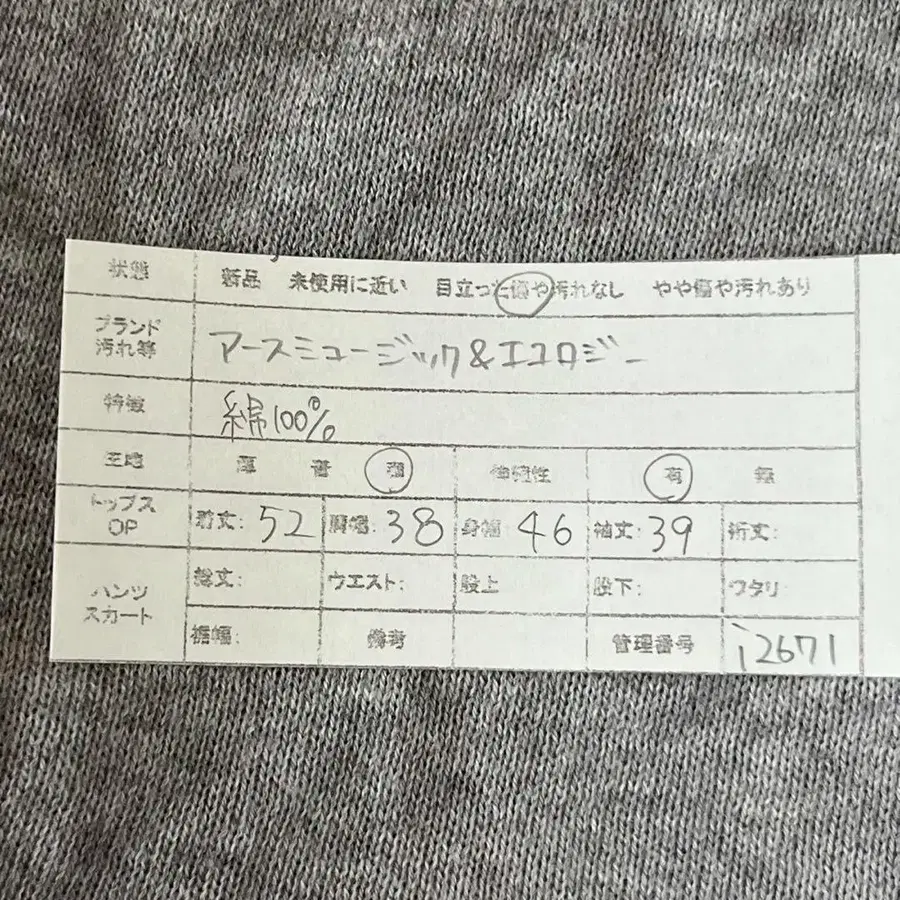 状態 新品 未使用に近い 目立った傷や汚れなし やや傷や汚れあり
ブランド
汚れ等 アースミュージック&エコロジー
特徴 綿100%
生地 厚 普 薄 伸縮性 有 無
トップス
OP 着丈: 52 肩幅: 38 身幅: 46 袖丈: 39 裄丈:
パンツ
スカート 総丈: ウエスト: 股上 股下: ワタリ
裾幅: 備考 管理番号 i2671